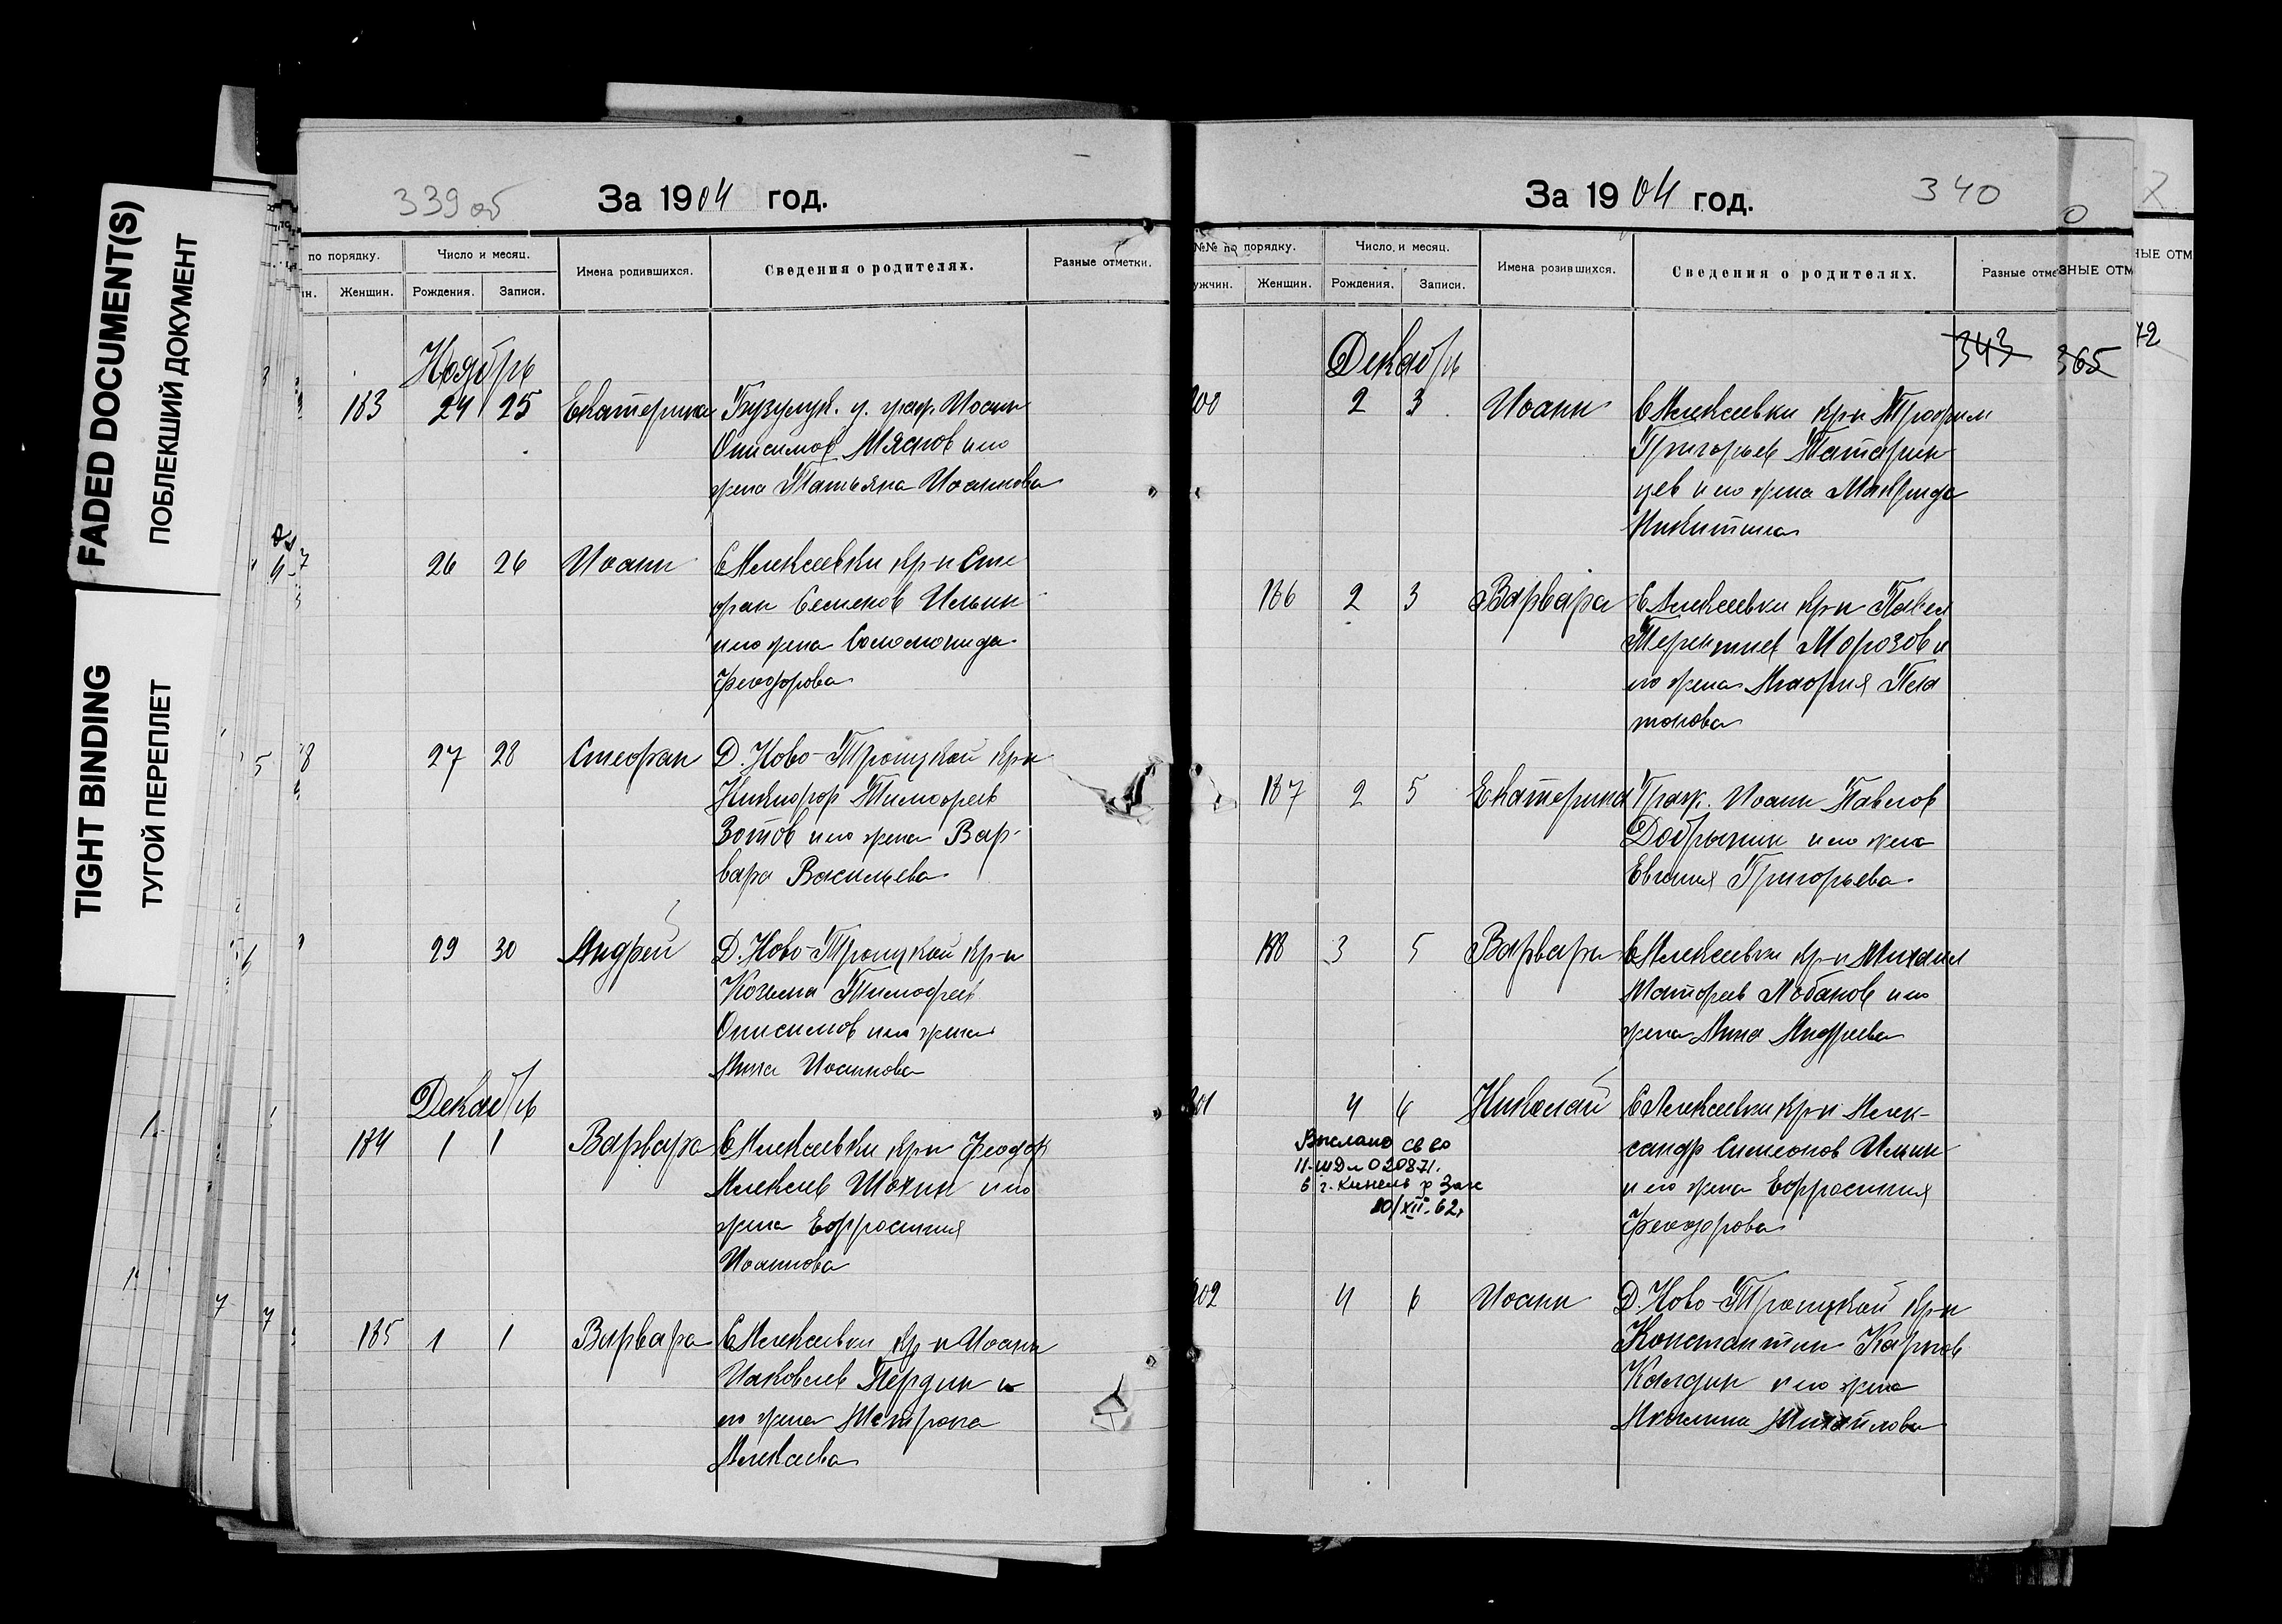 FADED DOCUMENT(S)
ПОБЛЕКШИЙ ДОКУМЕНТ
TIGHT BINDING
ТУГОЙ ПЕРЕПЛЕТ
339 об
За 1904 год.
по порядку.
Число и месяц.
Имена родившихся.
Сведения о родителях.
Разные отметки.
Женщин.
Рождения.
Записи.
Ноябрь
183 24 25 Екатерина Бузулук. у. граж. Иоанн
Онисимов Мяснов и его
жена Татьяна Иоаннова
26 26 Иоанн С Алексеевки кр-н Сте
фан Семенов Ильин
и его жена Соломонида
Феодорова
27 28 Стефан Д. Ново-Троицкой кр-н
Никифор Тимофеев
Зотов и его жена Вар-
вара Васильева
29 30 Андрей Д. Ново-Троицкой кр-н
Козьма Тимофеев
Онисимов и его жена
Анна Иоаннова
Декабрь
184 1 1 Варвара С Алексеевки кр-н Феодор
Алексеев Шохин и его
жена Евфросиния
Иоаннова
185 1 1 Варвара С Алексеевки кр-н Иоанн
Иаковлев Пердин и
его жена Матрона
Алексеева
За 1904 год.
340
№№ по порядку.
Число и месяц.
Имена розившихся.
Сведения о родителях.
Разные отме
Женщин.
Рождения.
Записи.
343
365
Декабрь
200 2 3 Иоанн С Алексеевки кр-н Трофим
Григорьев Татарин
цев и его жена Маврида
Никитина
186 2 3 Варвара С Алексеевки кр-н Павел
Терентиев Морозов и
его жена Мария Пла
тонова
187 2 5 Екатерина Граж. Иоанн Павлов
Добрынин и его жена
Евгения Григорьева
188 3 5 Варвара С Алексеевки кр-н Михаил
Матфеев Лобанов и его
жена Анна Андреева
201 4 6 Николай С Алексеевки кр-н Алек-
сандр Симеонов Ильин
и его жена Евфросиния
Феодорова
Выслано св во
II-ШД № 020871.
в г. Кинель р Загс
10/XII.62г
202 4 6 Иоанн Д. Ново-Троицкой кр-н
Константин Карпов
Калдин и его жена
Акилина Михайлова